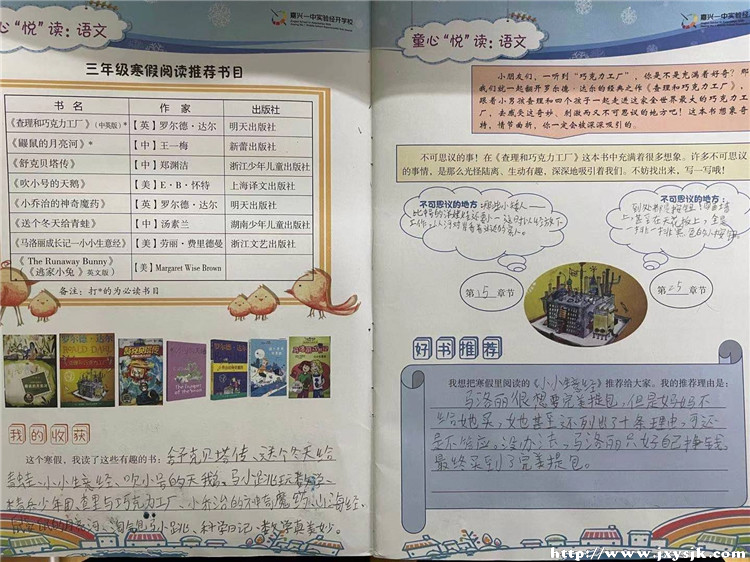 心“悦”读：语文
嘉兴一中实验经开学校
三年级寒假阅读推荐书目
书 名 作 家 出版社
《查理和巧克力工厂》(中英版)* 【英】罗尔德·达尔 明天出版社
《鼹鼠的月亮河》* 【中】王一梅 新蕾出版社
《舒克贝塔传》 【中】郑渊洁 浙江少年儿童出版社
《吹小号的天鹅》 【美】E·B·怀特 上海译文出版社
《小乔治的神奇魔药》 【英】罗尔德·达尔 明天出版社
《送个冬天给青蛙》 【中】汤素兰 湖南少年儿童出版社
《马洛丽成长记—小小生意经》 【美】劳丽·费里德曼 浙江文艺出版社
《The Runaway Bunny》
《逃家小兔》英文版) 【美】Margaret Wise Brown
备注：打*的为必读书目
罗尔德·达尔
ROALD DAHL
舒克贝塔传
我的收获
这个寒假，我读了这些有趣的书：舒克贝塔传、送个冬天给
青蛙、小小生意经、吹小号的天鹅、马小跳玩数学、
少年团、查理与巧克力工厂、小乔治的神奇魔药、山海经、
鼹鼠的月亮河、淘气包马小跳、科学日记、数学真美妙。
童心“悦”读：语文
嘉兴一中实验经开学校
小朋友们，一听到“巧克力工厂”，你是不是充满着好奇？那
我们就一起翻开罗尔德·达尔的经典之作《查理和巧克力工厂》，
跟着小男孩查理和四个孩子一起走进这家全世界最大的巧克力工
厂，去感受这奇妙、刺激而又不可思议的地方吧！这本书想象奇
特，情节曲折，你一定会被深深吸引的。
不可思议的事！在《查理和巧克力工厂》这本书中充满着很多想象。许多不可思议
的事情，是那么光怪陆离、生动有趣，深深地吸引着我们。不妨找出来，写一写哦！
不可思议的地方：那些小矮人——
比特的洋娃娃还要小——这时从手放下
工作，
不可思议的地方：
到处都是按钮！四面墙
上，甚至在天花板上，全是
一排一排黑色的小按钮
第 15 章节
第 25 章节
好书推荐
我想把寒假里阅读的《小小生意经》推荐给大家。我的推荐理由是：
马洛丽很想要完美提包，但是妈妈不
给她买，她甚至还列出了十条理由，可还
是不答应。没办法，马洛丽只好自己挣钱，
最终买到了完美提包。
http://www.jxysjk.com